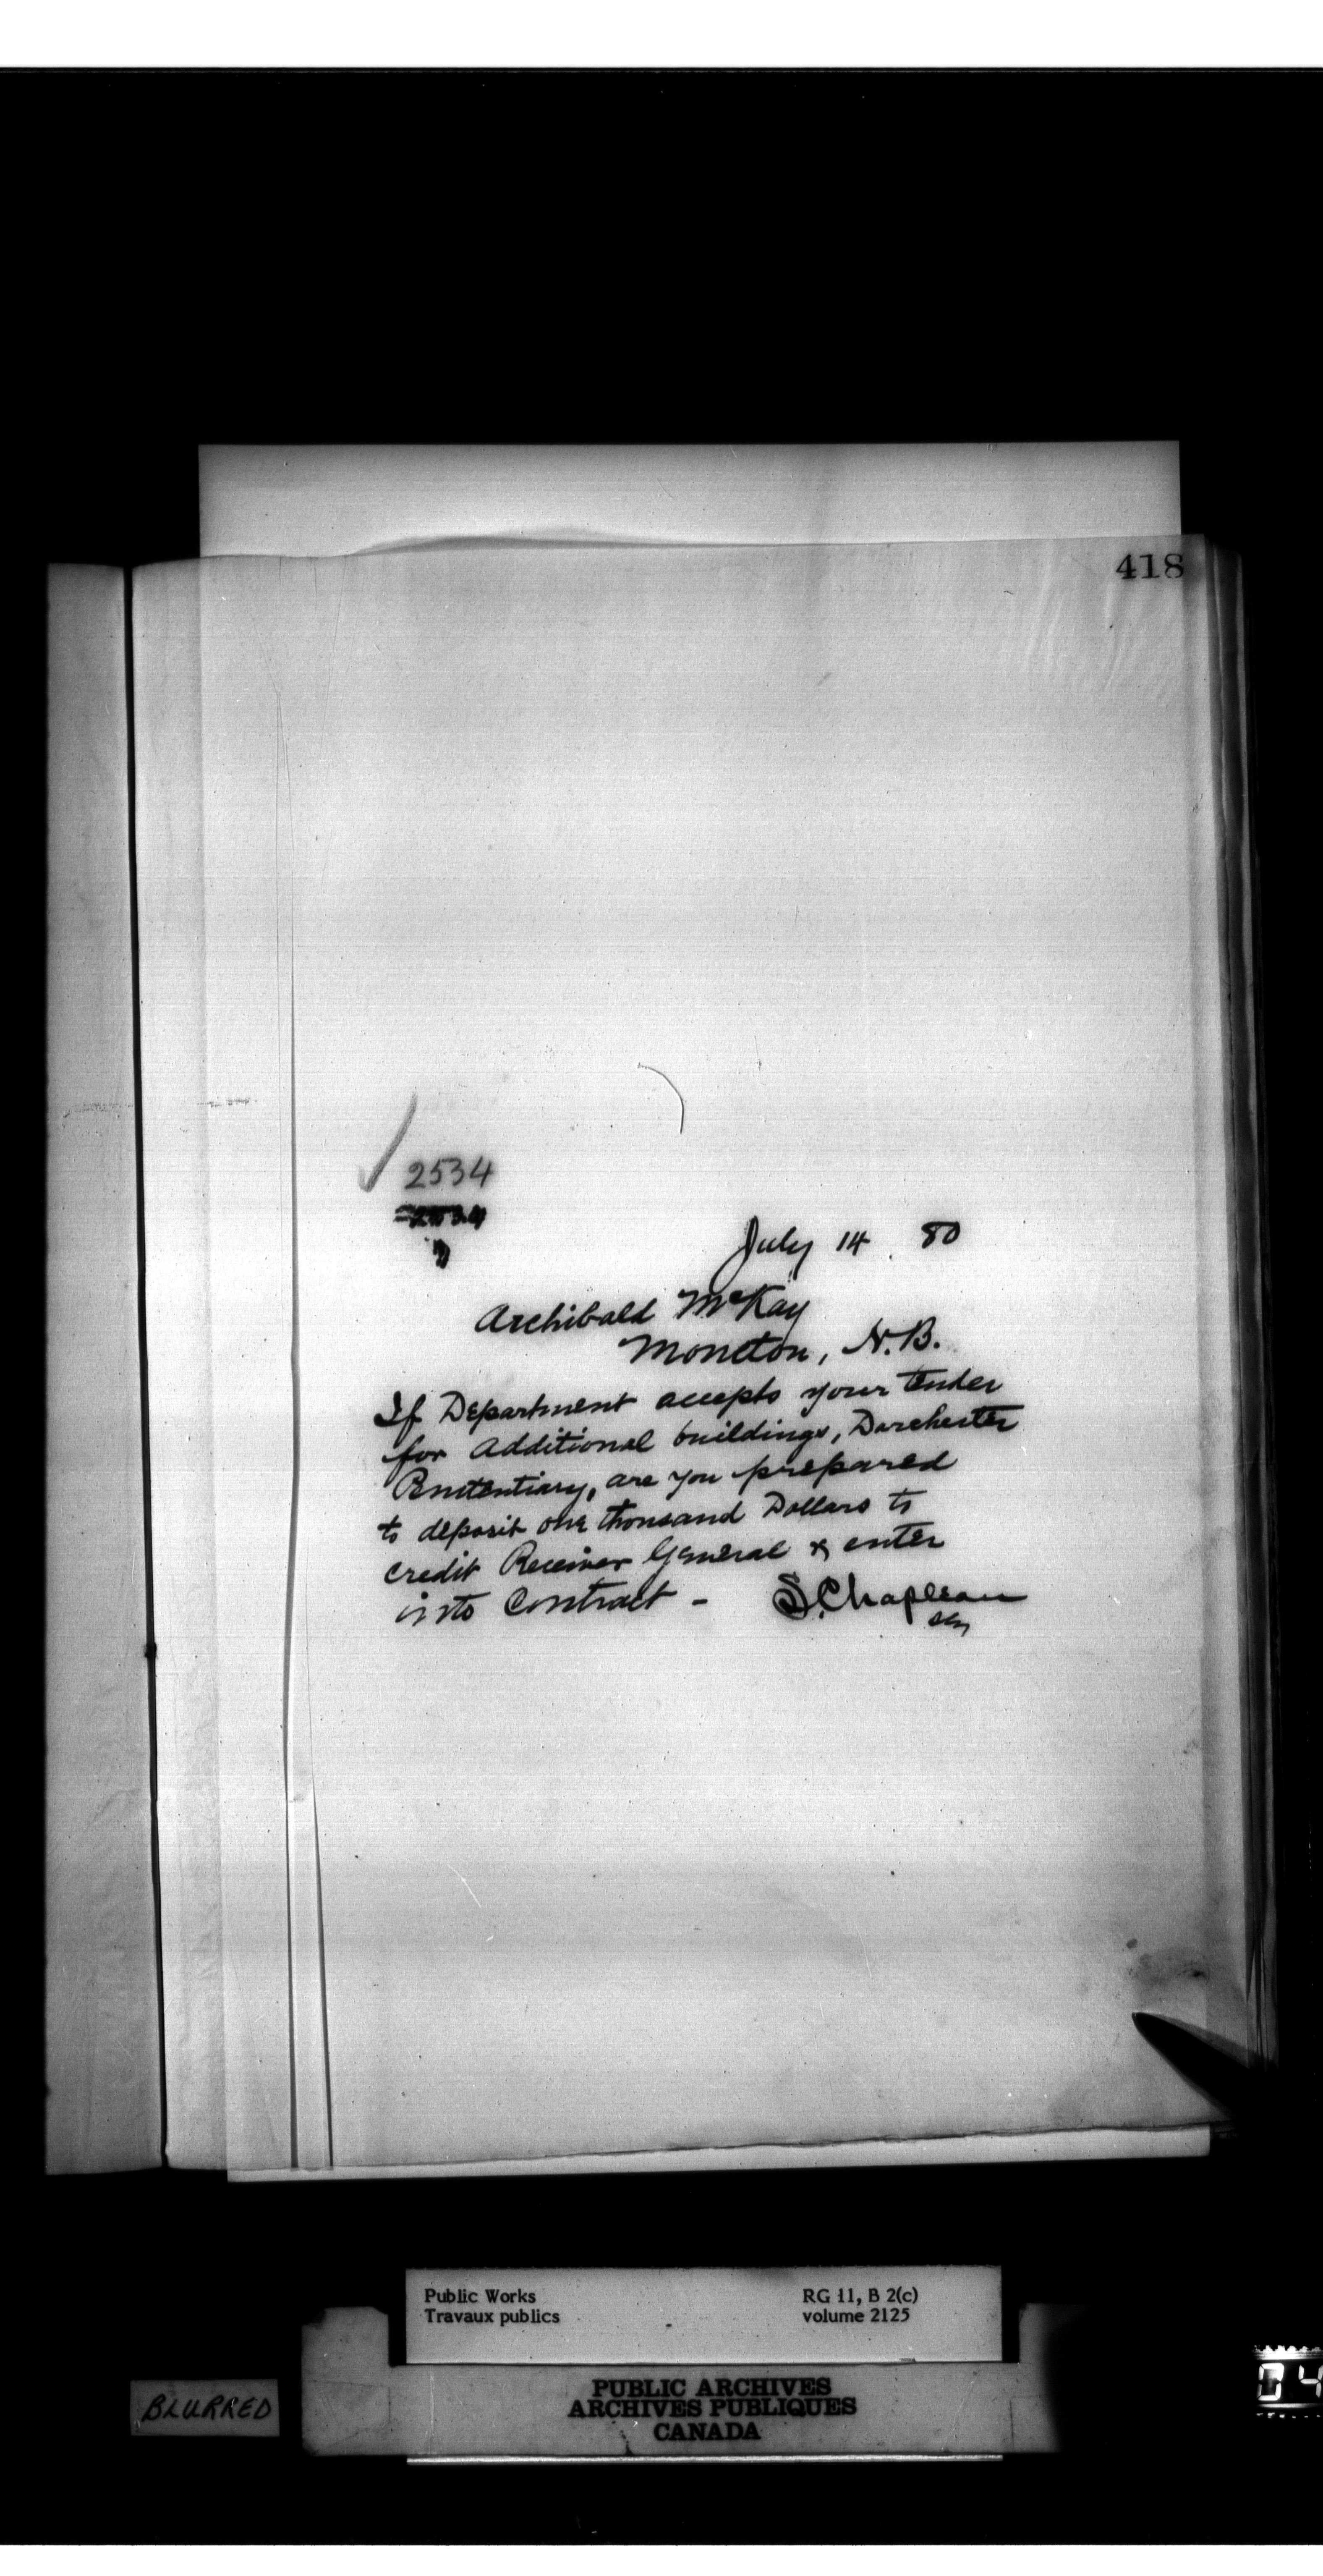 418
2534
July 14 80
Archibald McKay
Moncton, N.B.
If Department accepts your tender
for additional buildings, Dorchester
Penitentiary, are you prepared
to deposit one thousand Dollars to
credit Receiver General & enter
into Contract -
S. Chapleau
Sec
Public Works
Travaux publics
RG 11, B 2(c)
volume 2125
PUBLIC ARCHIVES
ARCHIVES PUBLIQUES
CANADA
BLURRED
04